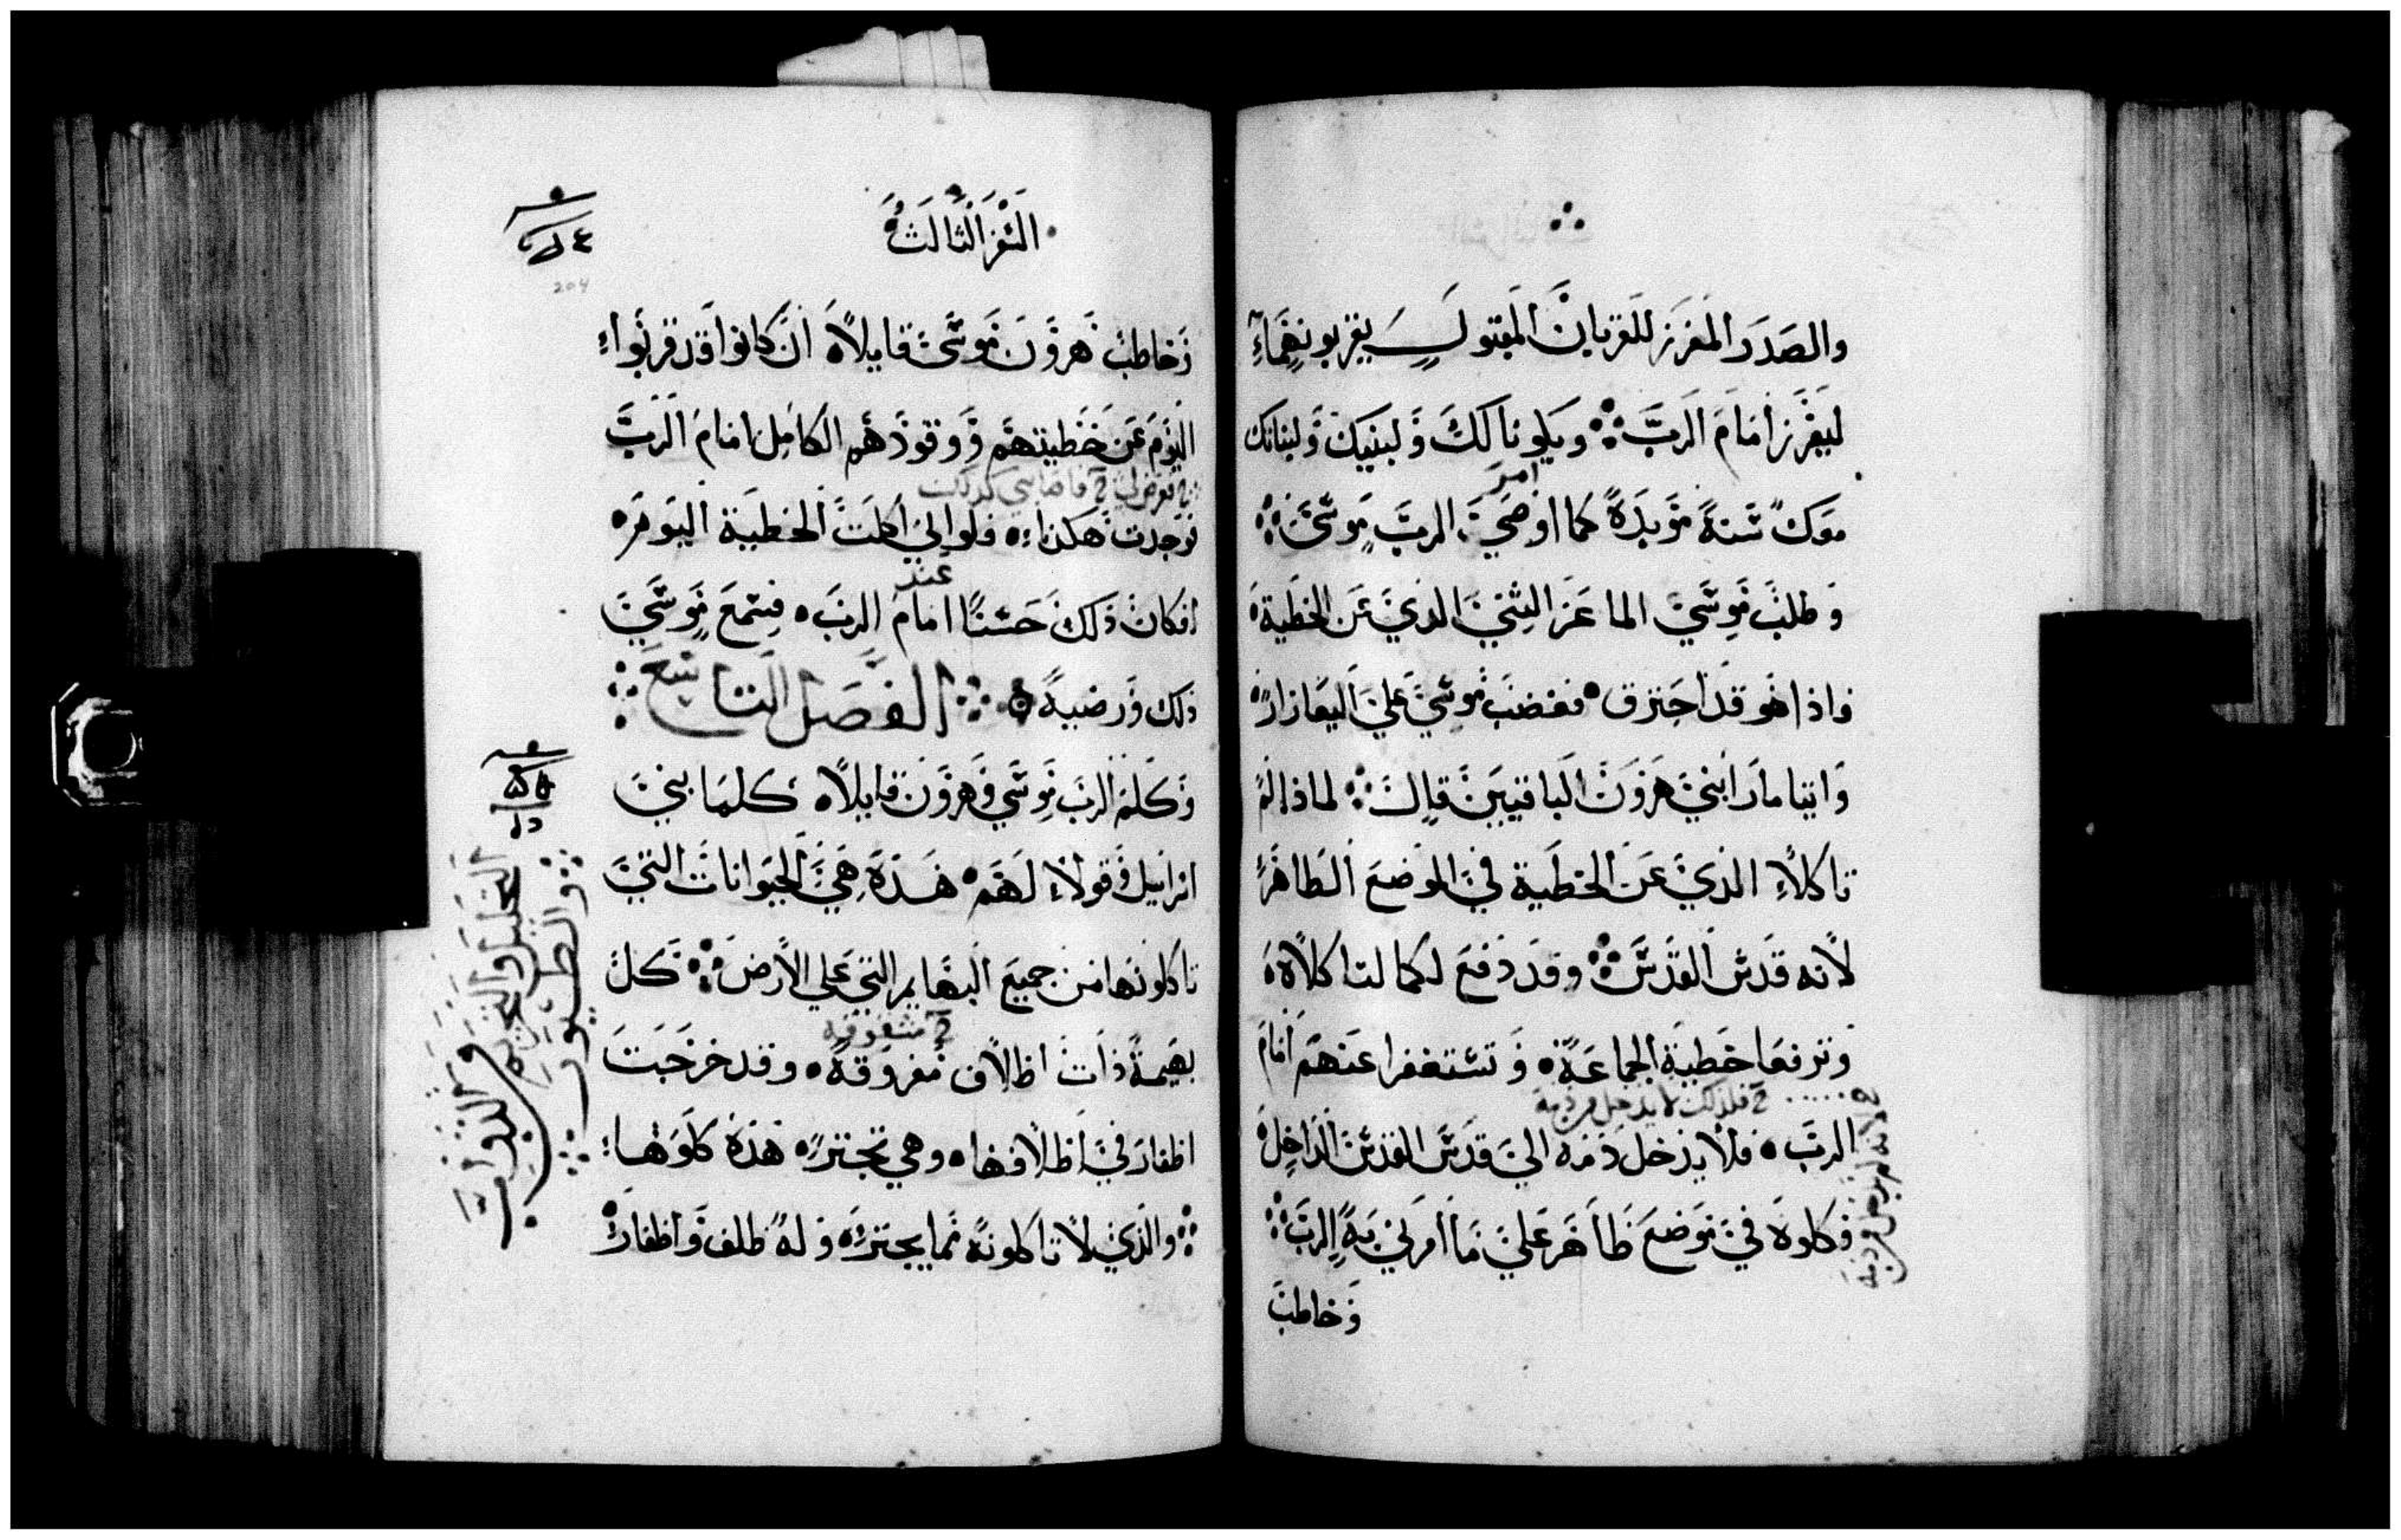 والصدر المفرز للقربان المقبول يقربونهما
ليفرز امام الرب ويكونا لك ولبنيك ولبناتك
معك سنة مؤبدة كما اوصي الرب موسي
امر
وطلب موسي الماعز الثني الذي عن الخطية
فاذا هو قد احترق فغضب موسي علي اليعازار
وايتامار ابني هرون الباقيين قال لماذا لم
تاكلا الذي عن الخطية في الموضع الطاهر
لانه قدس القدس وقد دفع لكما لتاكلاه
وترفعا خطية الجماعة وتستغفرا عنهم امام
فلذلك لا يدخل من دمه
الرب فلا يدخل دمه الي قدس القدس الداخل
فكلوه في موضع طاهر علي ما امرني به الرب
وخاطب
السفر الثالث
204
وخاطب هرون موسي قايلا ان كانوا قد قربوا
اليوم عن خطيتهم ووقودهم الكامل امام الرب
فوجدت هكذا فلو اني اكلت الخطية اليوم
عند
افكان ذلك حسنا امام الرب فسمع موسي
ذلك ورضيه الفصل التاسع
وكلم الرب موسي وهرون قايلا كلما بني
اسراييل وقولا لهم هذه هي الحيوانات التي
تاكلونها من جميع البهايم التي علي الارض كل
مشقوقه
بهيمة ذات اظلاف مفروقة وقد خرجت
اظفار في اظلافها وهي تجتر هذه كلوها
والذي لا تاكلونه مما يجتر وله ظلف واظفار
التحليل والتحريم
والطيور